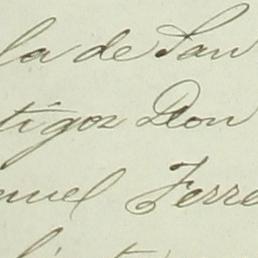 la de San
tigos Don
nuel Ferre